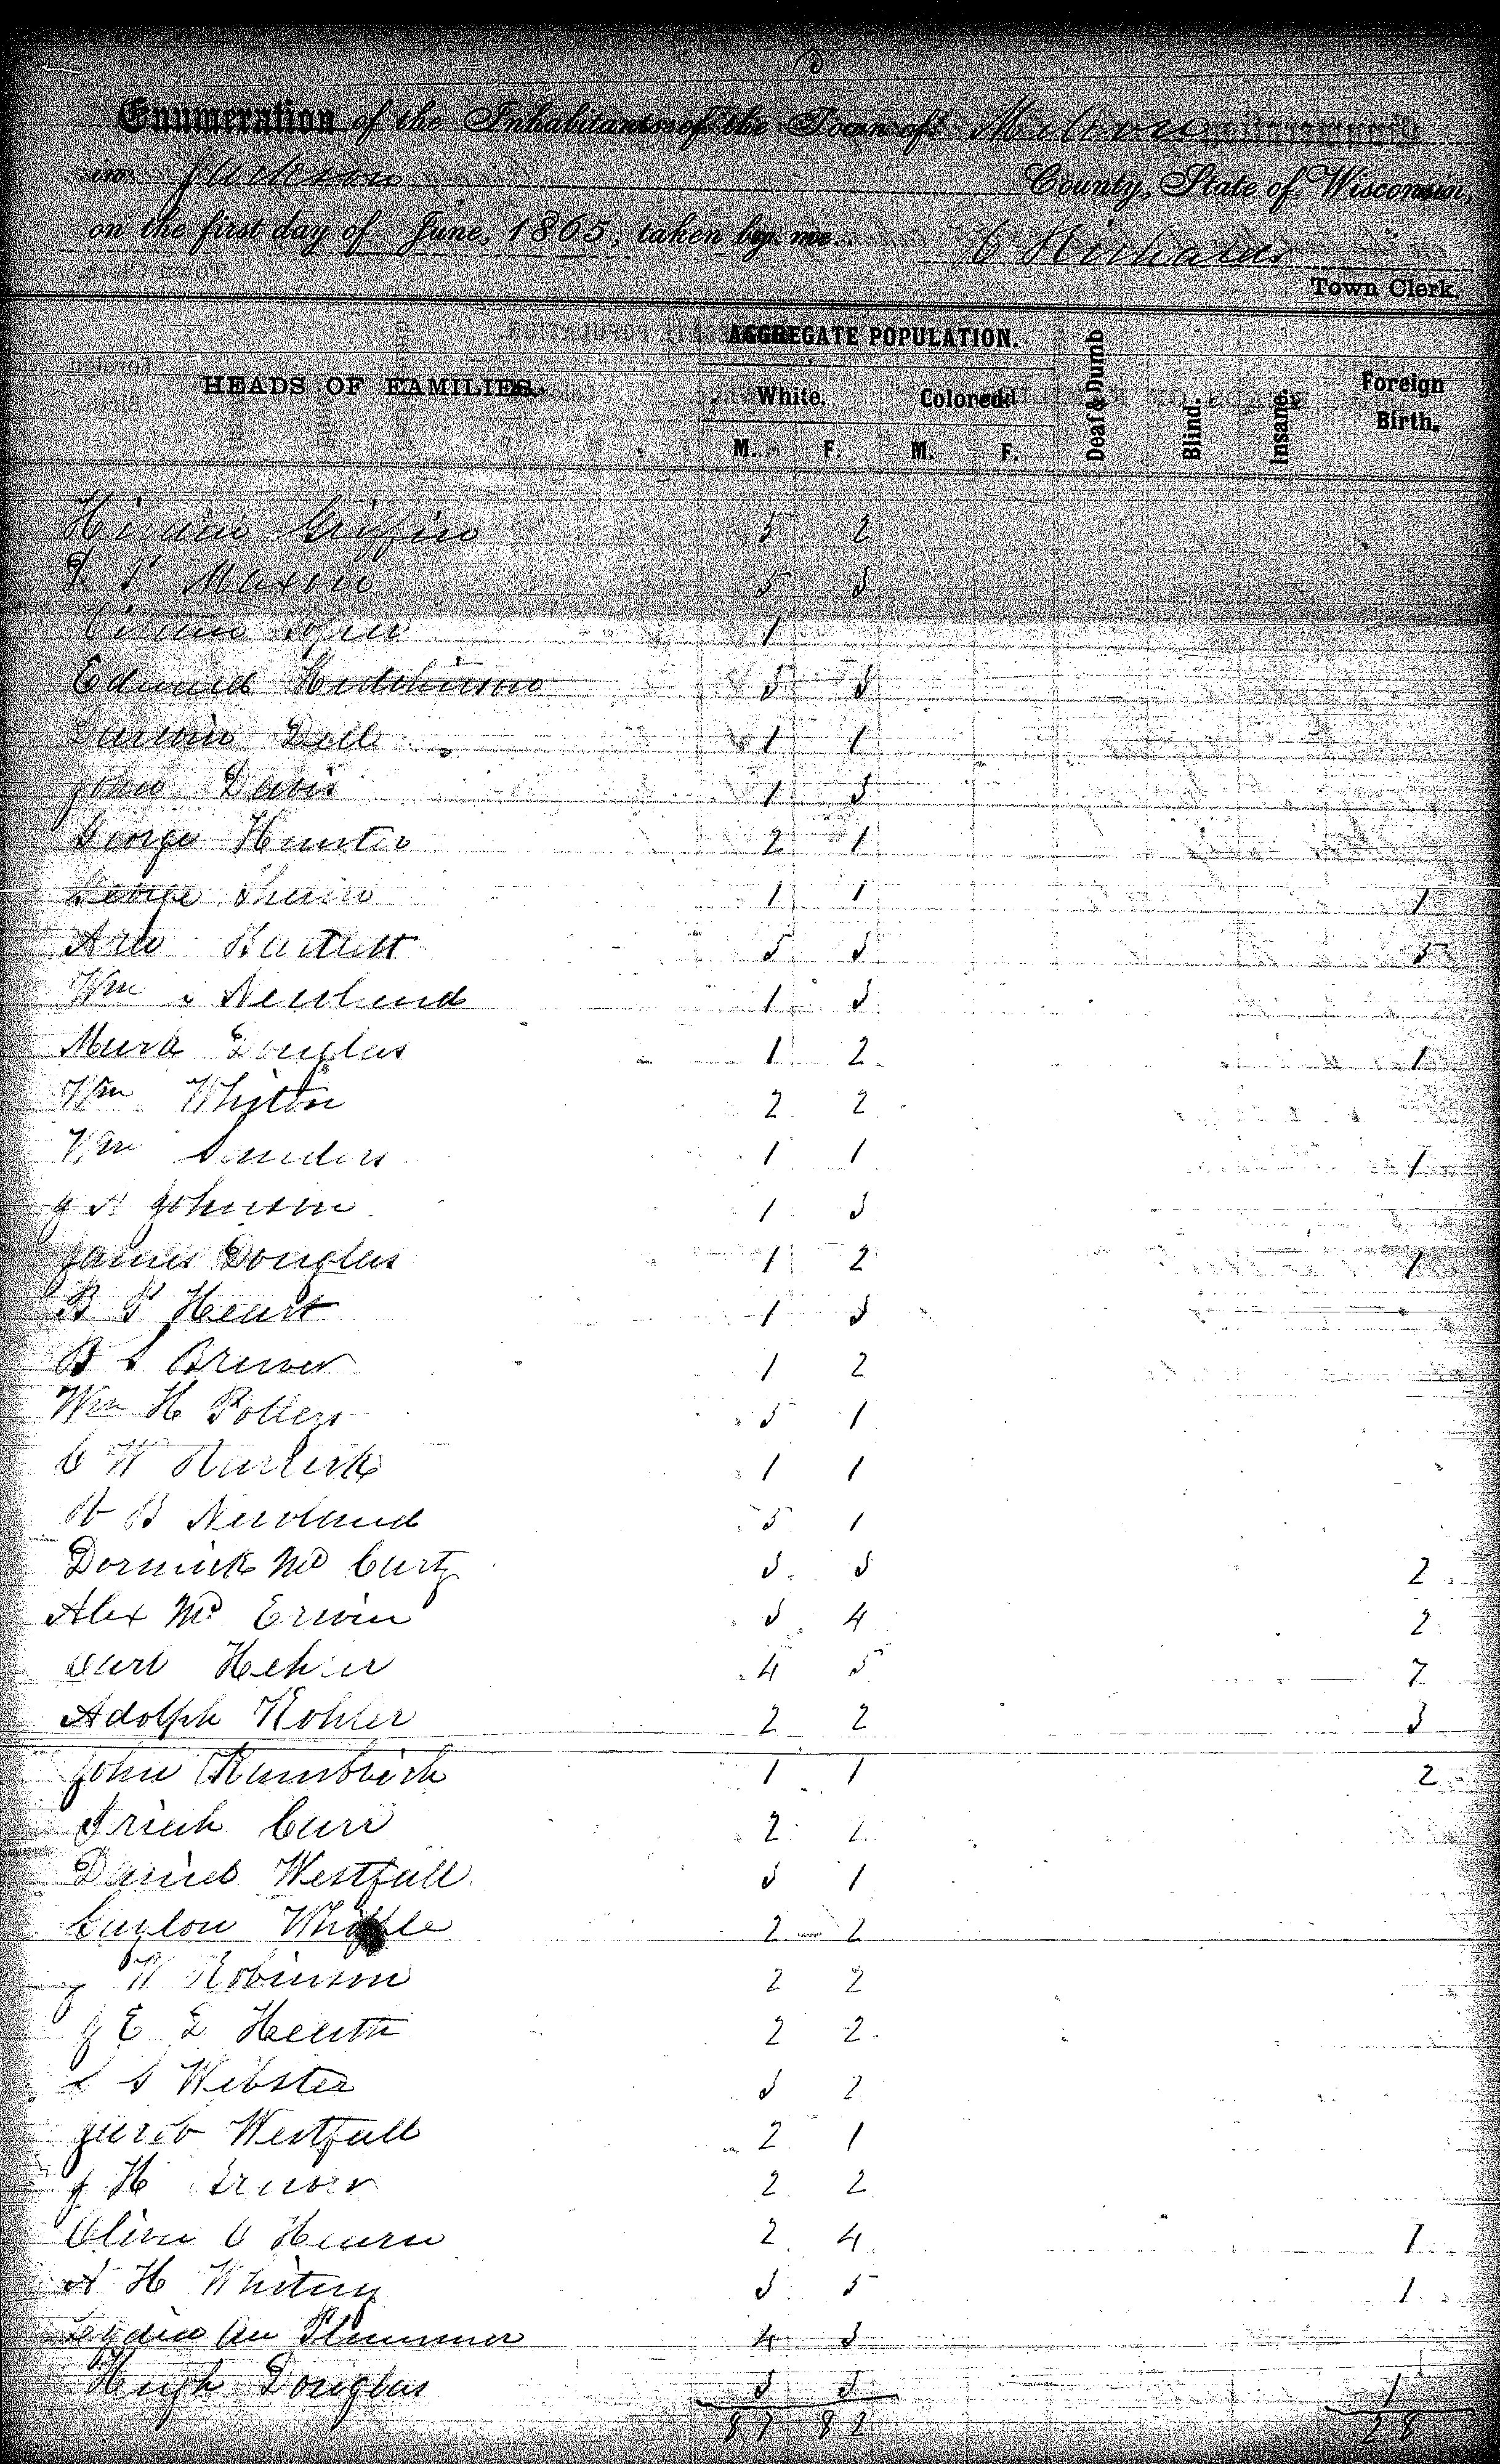 Enumeration of the Inhabitants of the Town of Melrose
in Jackson County, State of Wisconsin,
on the first day of June, 1865, taken by me C Richards
Town Clerk.
HEADS OF FAMILIES. AGGREGATE POPULATION. Deaf & Dumb Blind. Insane. Foreign Birth.
White. Colored.
M. F. M. F.
Hiram Griffin 5 2
Maxon 5 3
Hiram 1
Edward Hutchinson 3 3
Darwin Dell 1 1
John Davis 1 3
George Hunter 2 1
George 1 1 1
Bartlett 5 3 5
Wm Newland 1 3
Mark Douglas 1 2 1
Wm Whiton 2 2
Wm Sanders 1 1 1
Johnson 1 3
James Douglas 1 2 1
B P Heart 1 3
B S Brewer 1 2
Wm H Pollers 5 1
C W 1 1
B Newland 5 1
Dominick Mc Carty 3 3 2
Alex Mc Erwin 3 4 2
Carl 4 5 7
Adolph Kohler 2 2 3
John 1 1 2
Carr 2 2
Daniel Westfall 3 1
Gaylon Whipple 2 2
J W Robinson 2 2
J E E Heath 2 2
L S Webster 3 2
Jacob Westfall 2 1
J H Brewer 2 2
O Hearn 2 4 1
A H Whitney 3 5 1
Lydia An Plummer 4 3
Hugh Douglas 3 3 1
87 82 28